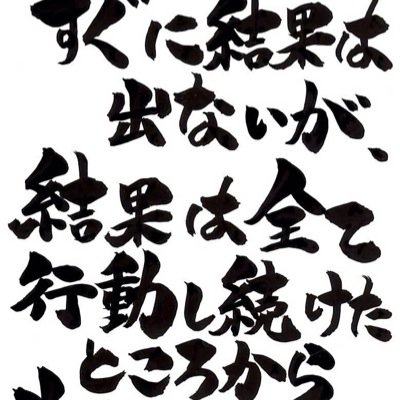 すぐに結果は
出ないが、
結果は全て
行動し続けた
ところから